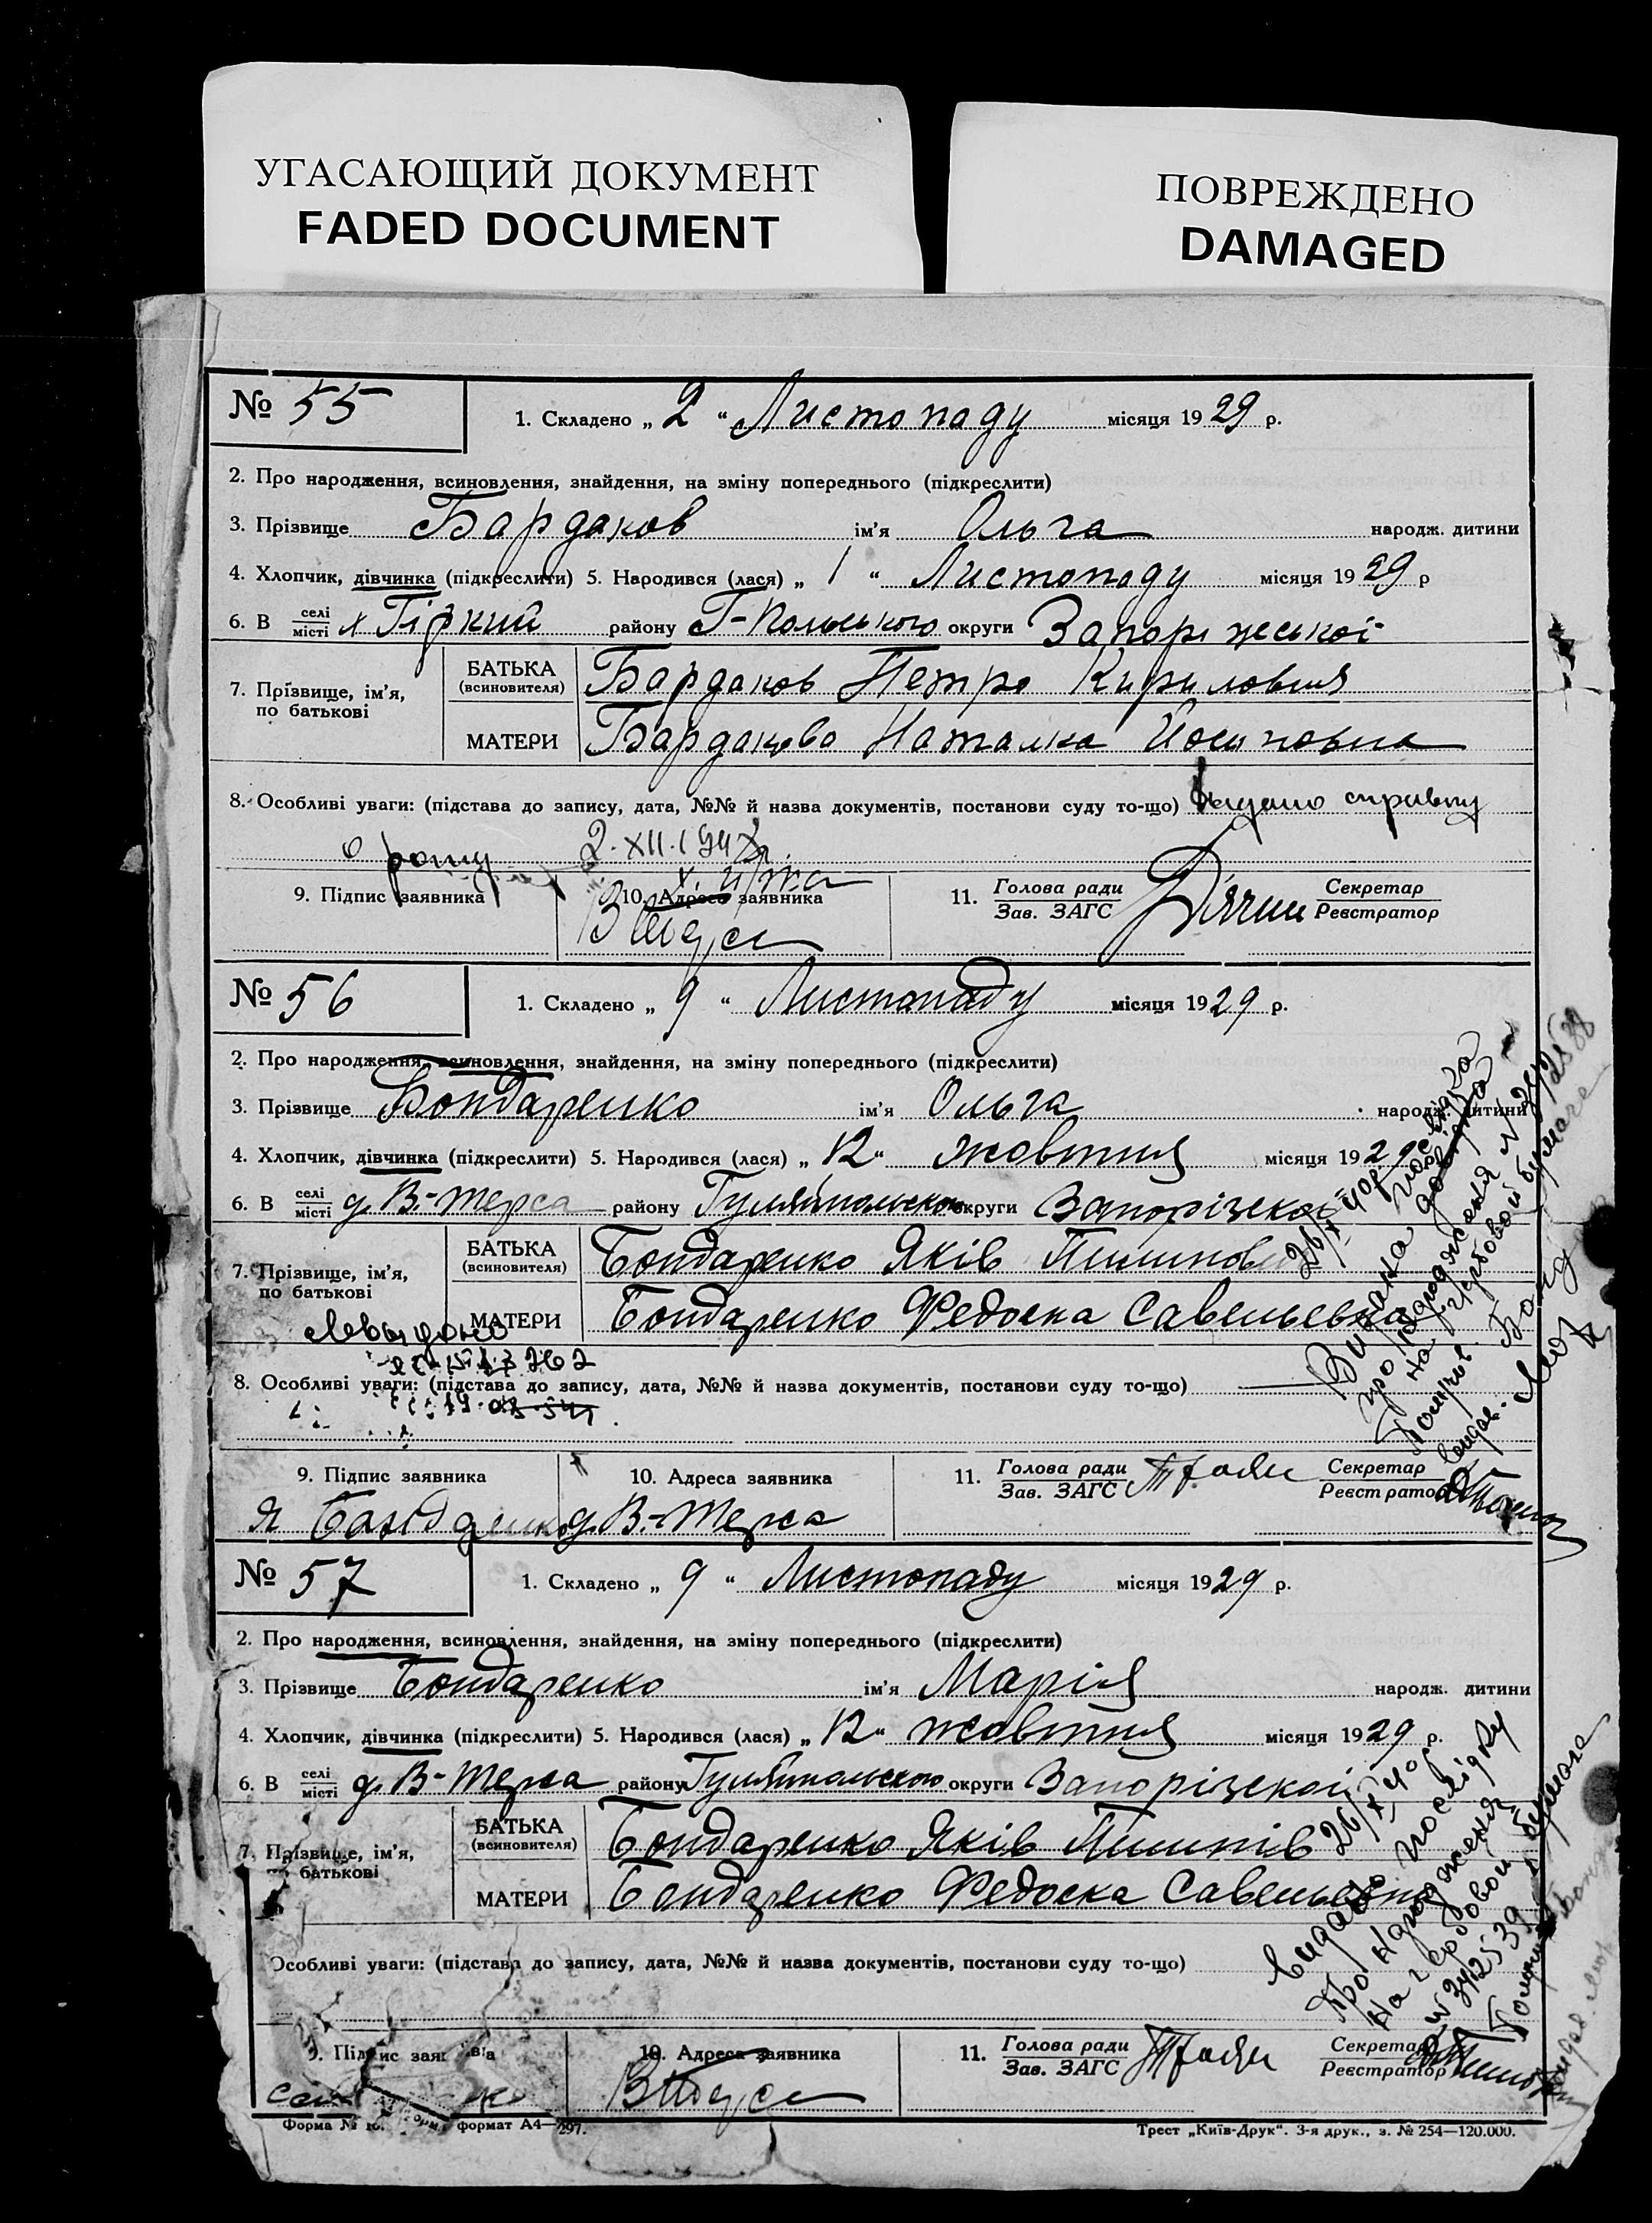 УГАСАЮЩИЙ ДОКУМЕНТ
FADED DOCUMENT
ПОВРЕЖДЕНО
DAMAGED
№ 55
1. Складено „ 2 “ Листопаду місяця 1929 р.
2. Про народження, всиновлення, знайдення, на зміну попереднього (підкреслити)
3. Прізвище Бардаков ім’я Ольга народж. дитини
4. Хлопчик, дівчинка (підкреслити) 5. Народився (лася) „ 1 “ Листопаду місяця 1929 р
6. В селі/місті х Гіркий району Г-Польського округи Запоріжської
7. Прізвище, ім’я, по батькові
БАТЬКА (всиновителя) Бардаков Петро Кирилович
МАТЕРИ Бардакова Наталка Йосиповна
8. Особливі уваги: (підстава до запису, дата, №№ й назва документів, постанови суду то-що) Видано справку
2.XII.194
9. Підпис заявника
10. Адреса заявника
В Терса
11. Голова ради/Зав. ЗАГС Секретар/Реєстратор
№ 56
1. Складено „ 9 “ Листопаду місяця 1929 р.
2. Про народження, всиновлення, знайдення, на зміну попереднього (підкреслити)
3. Прізвище Бондаренко ім’я Ольга народж. дитини
4. Хлопчик, дівчинка (підкреслити) 5. Народився (лася) „ 12 “ жовтня місяця 1929
6. В селі/місті д. В.-Терса району Гуляйпольського округи Запорізскої
7. Прізвище, ім’я, по батькові
БАТЬКА (всиновителя) Бондаренко Яків Пилипов
МАТЕРИ Бондаренко Федоска Савельевна
8. Особливі уваги: (підстава до запису, дата, №№ й назва документів, постанови суду то-що)
26/X 40р
Видана
про народження
на гербовой бумаге
9. Підпис заявника
10. Адреса заявника
11. Голова ради/Зав. ЗАГС Секретар/Реєстратор
Я Бондаренко
д. В.-Терса
№ 57
1. Складено „ 9 “ Листопаду місяця 1929 р.
2. Про народження, всиновлення, знайдення, на зміну попереднього (підкреслити)
3. Прізвище Бондаренко ім’я Марія народж. дитини
4. Хлопчик, дівчинка (підкреслити) 5. Народився (лася) „ 12 “ жовтня місяця 1929 р.
6. В селі/місті д. В-Терса району Гуляйпольского округи Запорізскої
7. Прізвище, ім’я, по батькові
БАТЬКА (всиновителя) Бондаренко Яків Пилипів
МАТЕРИ Бондаренко Федоска Савельевна
Особливі уваги: (підстава до запису, дата, №№ й назва документів, постанови суду то-що)
26/X 40р
Видано
про народження
на гербовой бумаге
9. Підпис заявника
10. Адреса заявника
11. Голова ради/Зав. ЗАГС Секретар/Реєстратор
В Терса
формат А4—297.
Трест „Київ-Друк“. 3-я друк., з. № 254—120.000.